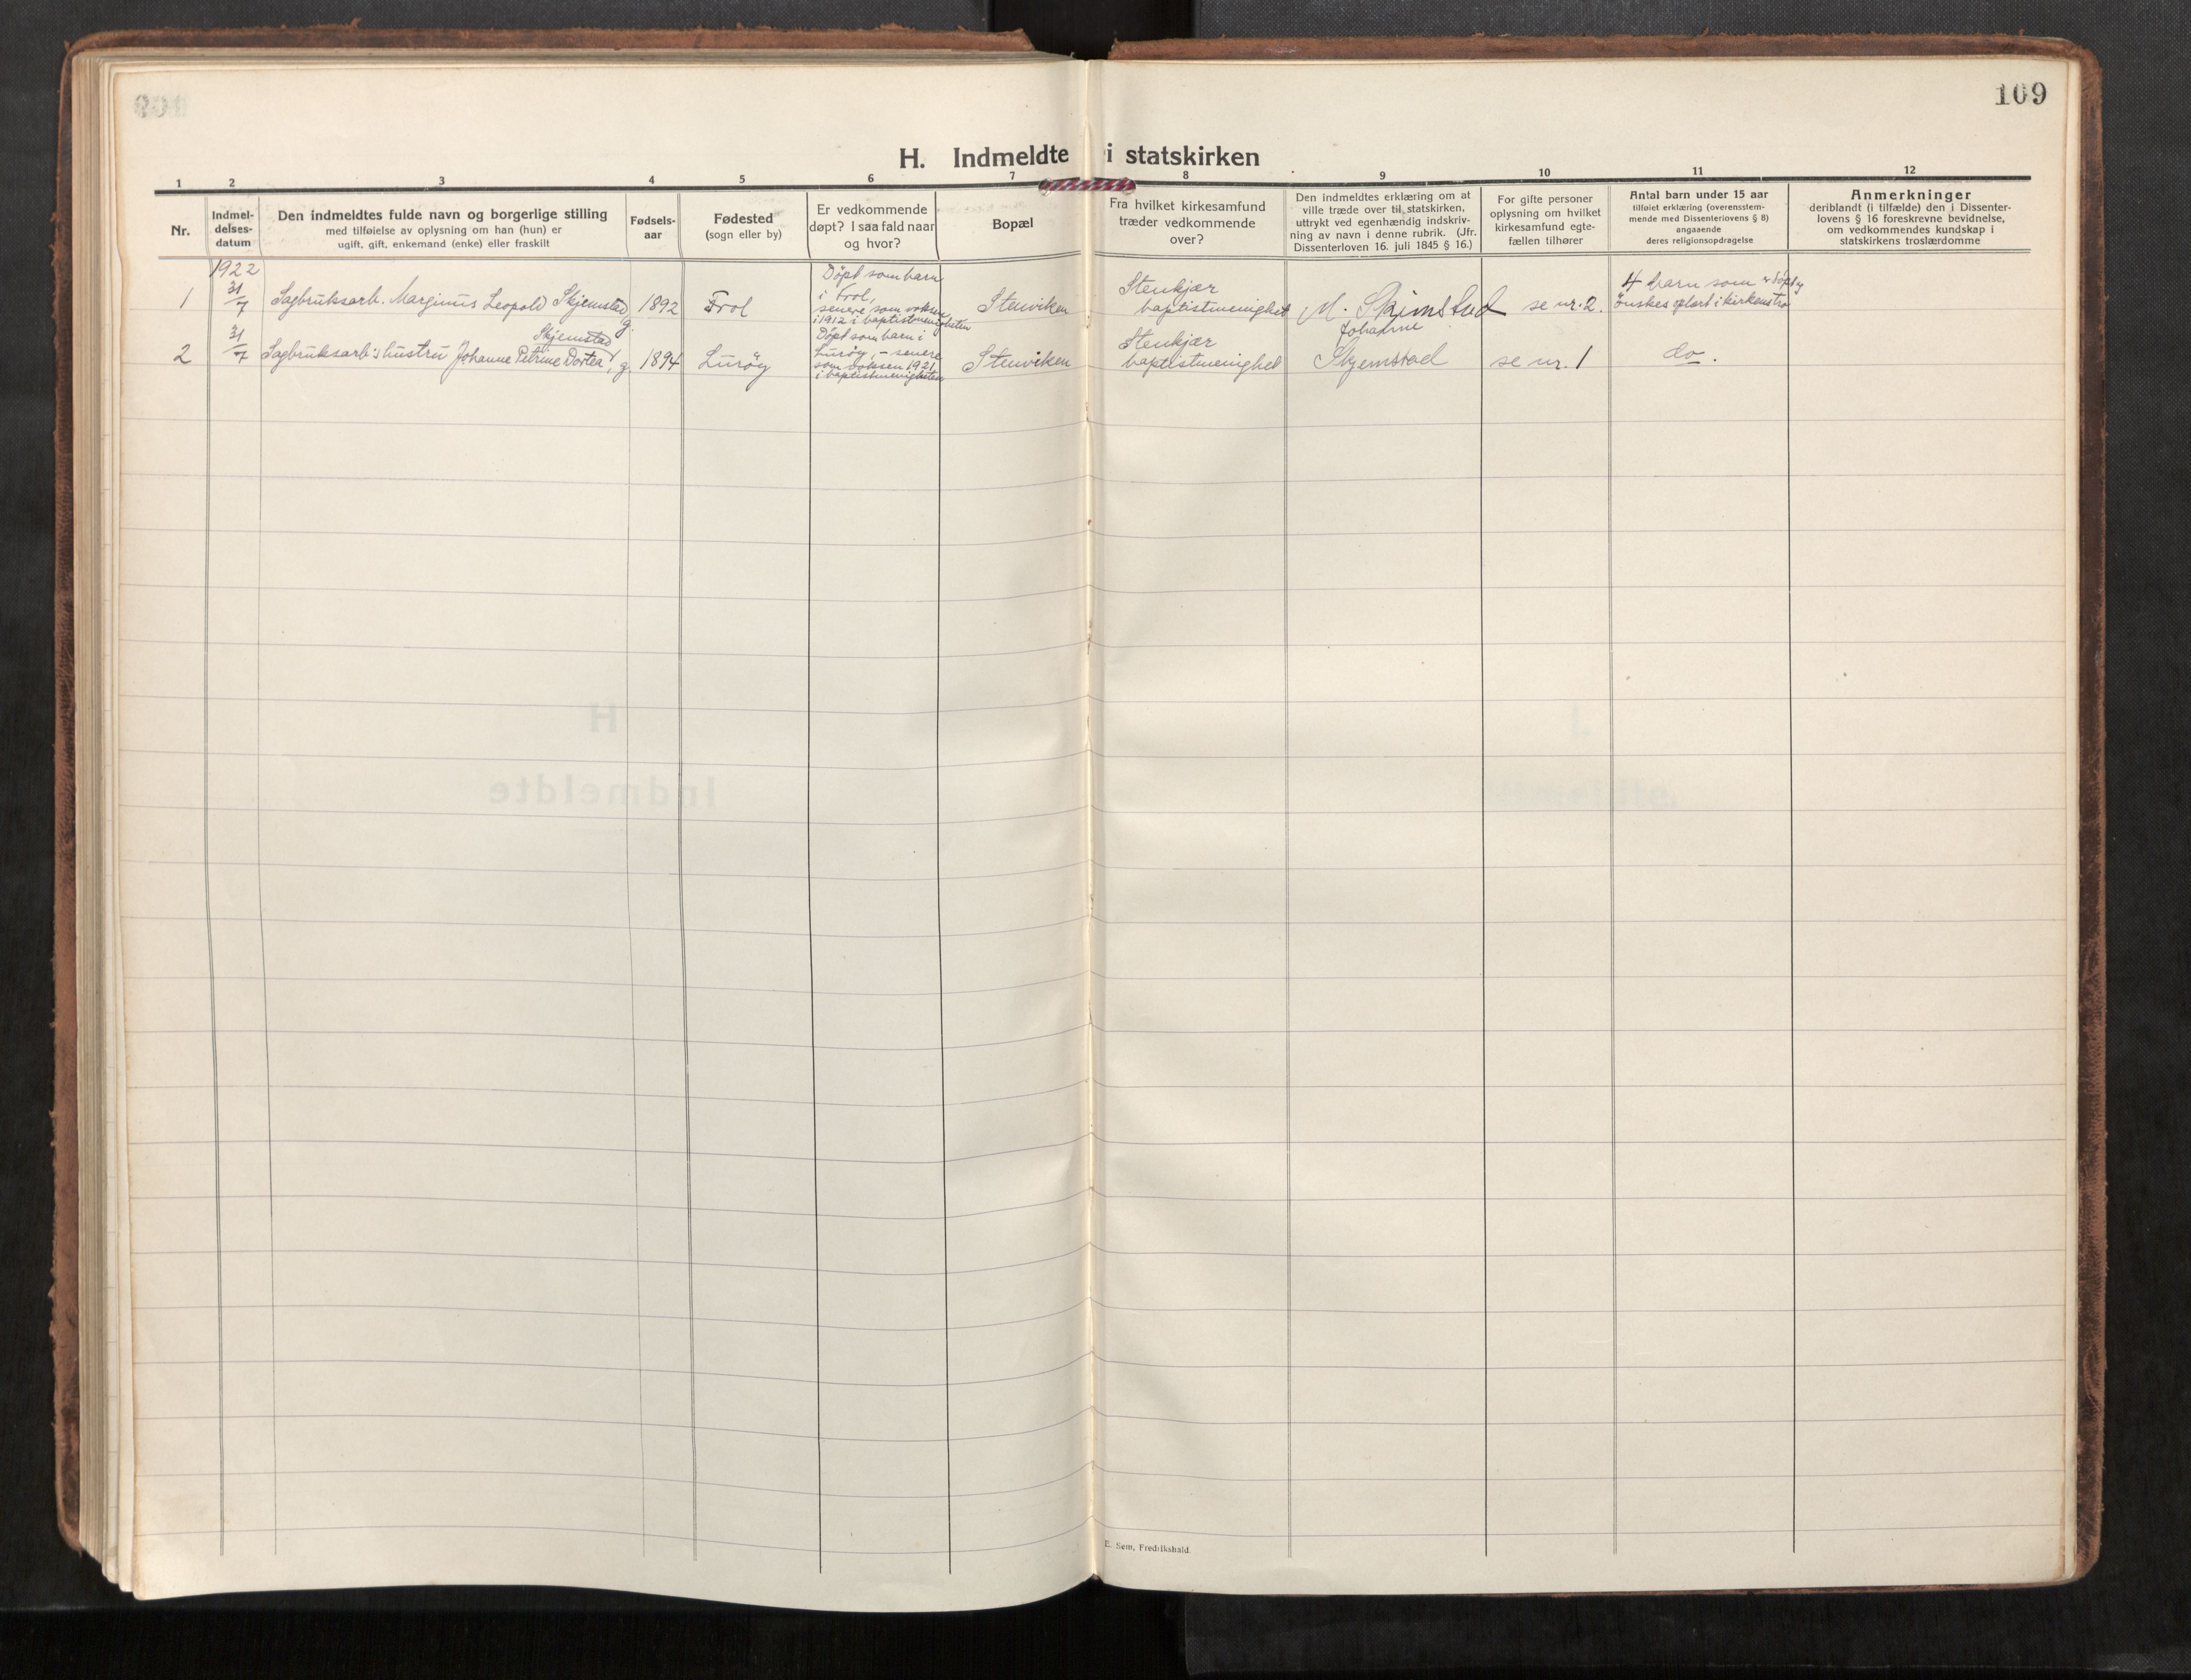 109
H. Indmeldte i statskirken
1 2 3 4 5 6 7 8 9 10 11 12
Nr.
Indmel-
delses-
datum
Den indmeldtes fulde navn og borgerlige stilling
med tilføielse av oplysning om han (hun) er
ugift, gift, enkemand (enke) eller fraskilt
Fødsels-
aar
Fødested
(sogn eller by)
Er vedkommende
døpt? I saa fald naar
og hvor?
Bopæl
Fra hvilket kirkesamfund
træder vedkommende
over?
Den indmeldtes erklæring om at
ville træde over til statskirken,
uttrykt ved egenhændig indskriv-
ning av navn i denne rubrik. (Jfr.
Dissenterloven 16. juli 1845 § 16.)
For gifte personer
oplysning om hvilket
kirkesamfund egte-
fællen tilhører
Antal barn under 15 aar
tilføiet erklæring (overensstem-
mende med Dissenterlovens § 8)
angaaende
deres religionsopdragelse
Anmerkninger
deriblandt (i tilfælde) den i Dissenter-
lovens § 16 foreskrevne bevidnelse,
om vedkommendes kundskap i
statskirkens troslærdomme
1922
1
31/7
Sagbruksarb. Marginus Leopold Skjemstad
g.
1892
Frol
Döpt som barn
i Frol,
senere som voksen
i 1912 i baptistmenigheten
Stenviken
Stenkjær
baptistmenighet
M. Skjemstad
se nr. 2.
4 barn som er döpt og
önskes oplært i kirkens tro
2
31/7
Skjemstad
Sagbruksarb's hustru Johanne Petrine Dortea, g.
1894
Luröy
Döpt som barn i
Luröy, - senere
som voksen 1921
i baptistmenigheten
Stenviken
Stenkjær
baptistmenighet
Johanne
Skjemstad
se nr. 1
do.
E. Sem, Fredrikshald.